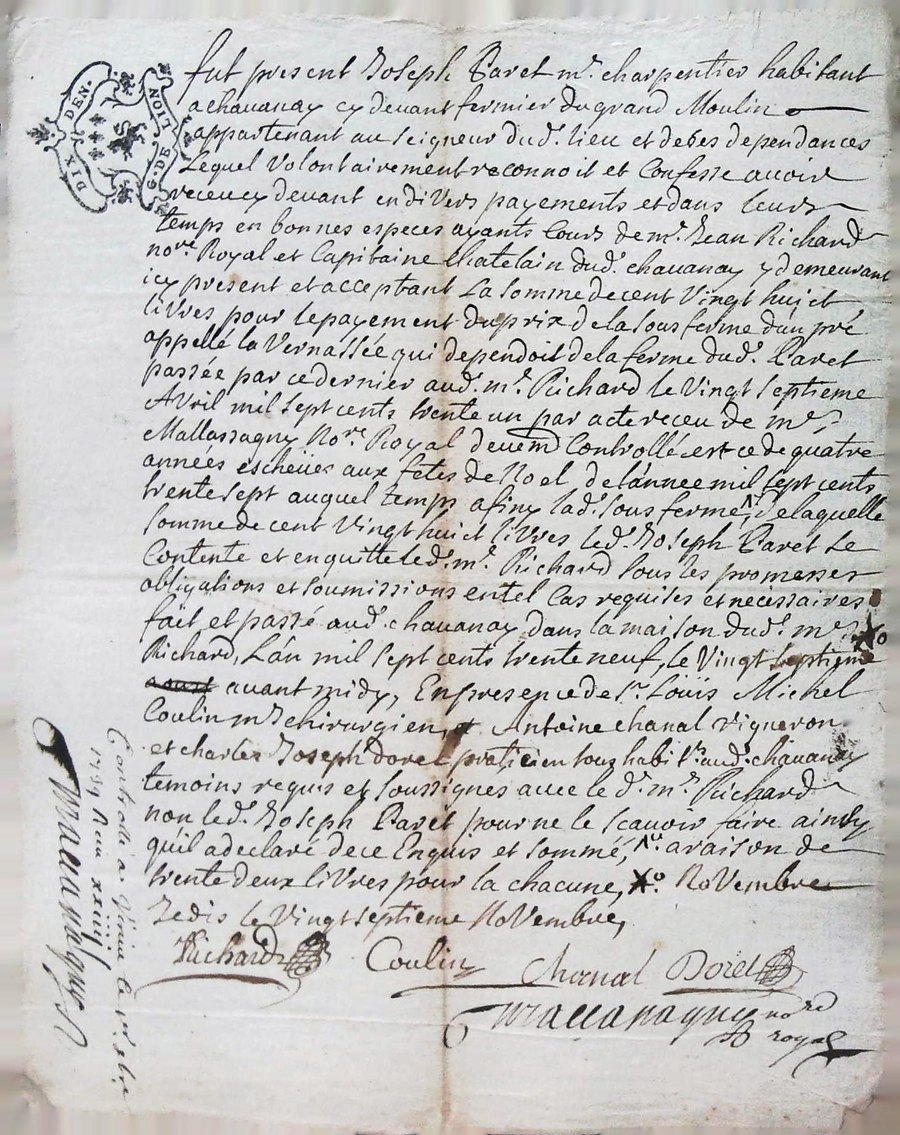 DIX DEN.
G. DE NOIT
fut present Joseph Paret mᵉ. charpentier habitant
a chauanay cy deuant fermier du grand Moulin
appartenant au seigneur dud. lieu et de ses dependances
Lequel Volontairement reconnoit et Confesse auoir
receu cy deuant en diVers payements et dans leurs
temps en bonnes especes ayants Cours de mᵉ. Jean Richard
noʳᵉ Royal et Capitaine Chatelain dud. chauanay y demeurant
icy present et acceptant La somme de cent Vingt huict
liVres pour le payement du prix de la sous ferme d'un pré
appellé la Vernassée qui dependoit de la ferme dud. Paret
passée par ce dernier aud. mᵉ. Richard le Vingt septieme
AVril mil sept cents trente un par acte receu de mᵉ
Mallassagny Noʳᵉ Royal deuem̄ Controllé et ce de quatre
années escheües aux fêtes de Noel de l'année mil sept cents
trente sept auquel temps a finy lad. sous ferme, de laquelle
somme de cent Vingt huict liVres led. Joseph Paret se
Contente et en quitte led. mᵉ. Richard sous les promesses
obligations et soumissions en tel Cas requises et necessaires
fait et passé aud. chauanay dans la maison dud. mᵉ
Richard, L'an mil sept cents trente neuf, le Vingt septieme Xo
aoust auant midy, En presence de sʳ. Loüis Michel
Coulin mᵉ chirurgien, et Antoine chanal Vigneron
et charles Joseph Dorel praticien tous habitˢ. aud. chauanay
temoins requis et soussignes auec led. mᵉ. Richard
non led. Joseph Paret pour ne le scauoir faire ainsy
qu'il a declaré de ce Enquis et sommé, a raison de
trente deux liVres pour la chacune, Xo. NoVembre
Je dis le Vingt septieme NoVembre,
Richard Coulin Chanal Dorel
noʳᵉ
royal
Controllé a
1739